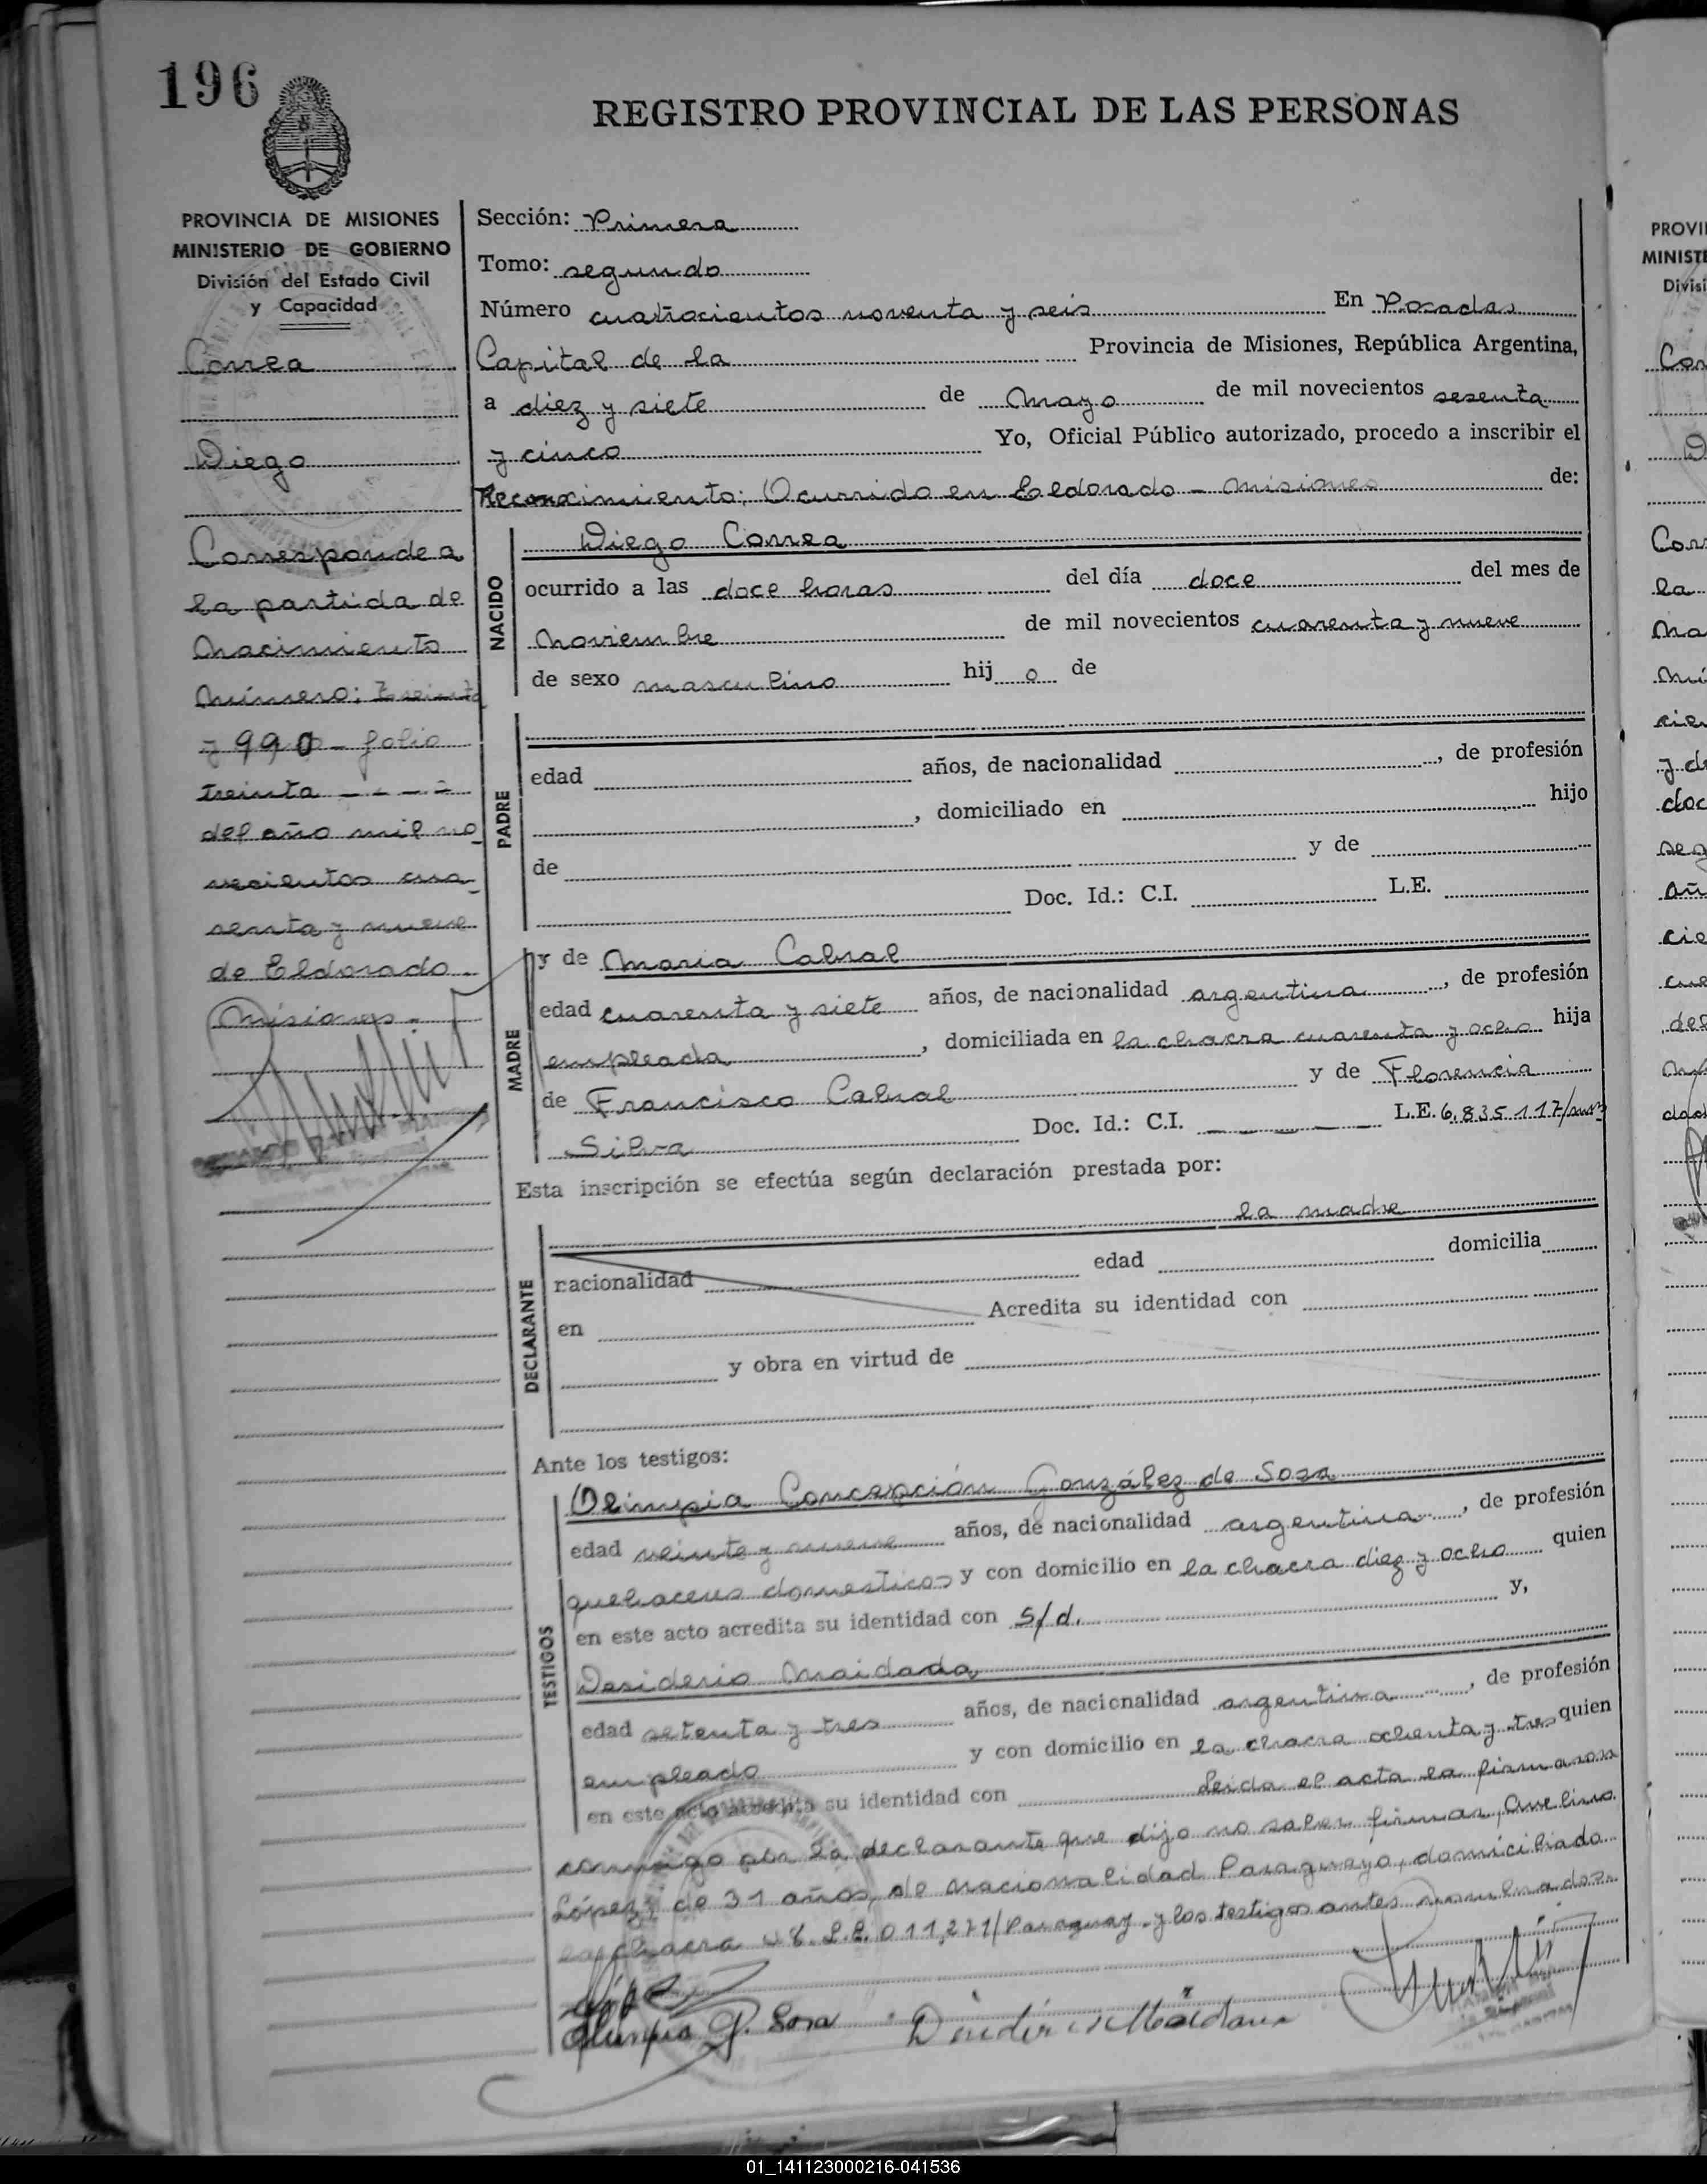 196
REGISTRO PROVINCIAL DE LAS PERSONAS
PROVINCIA DE MISIONES
MINISTERIO DE GOBIERNO
División del Estado Civil
y Capacidad
Correa
Diego
Corresponde a
la partida de
Nacimiento
Número:
y 990 - folio
treinta - - - -
del año mil no
vecientos cua-
renta y nueve
de Eldorado -
Misiones -
Sección: Primera
Tomo: segundo
Número cuatrocientos noventa y seis En Posadas
Capital de la Provincia de Misiones, República Argentina,
a diez y siete de Mayo de mil novecientos sesenta
y cinco Yo, Oficial Público autorizado, procedo a inscribir el
Reconocimiento: Ocurrido en Eldorado - Misiones de:
NACIDO
Diego Correa
ocurrido a las doce horas del día doce del mes de
Noviembre de mil novecientos cuarenta y nueve
de sexo masculino hij o de
PADRE
edad años, de nacionalidad , de profesión
, domiciliado en hijo
de y de
Doc. Id.: C.I. L.E.
MADRE
y de Maria Cabral
edad cuarenta y siete años, de nacionalidad argentina , de profesión
empleada , domiciliada en la chacra cuarenta y ocho hija
de Francisco Cabral y de Florencia
Silva Doc. Id.: C.I. — — — — L.E. 6.835.117/
Esta inscripción se efectúa según declaración prestada por:
la madre
DECLARANTE
nacionalidad edad domicilia
en Acredita su identidad con
y obra en virtud de
Ante los testigos:
TESTIGOS
Olimpia Concepción González de Sosa
edad veinte y nueve años, de nacionalidad argentina , de profesión
quehaceres domesticos y con domicilio en la chacra diez y ocho quien
en este acto acredita su identidad con S/d. y,
Desiderio Maidana
edad setenta y tres años, de nacionalidad argentina , de profesión
empleado y con domicilio en la chacra ochenta y tres quien
en este acto acredita su identidad con Leida el acta la firmaron
conmigo por la declarante que dijo no saber firmar, Avelino
López, de 31 años, de nacionalidad Paraguaya, domiciliado
chacra 48. L.E. 011,271/Paraguay - y los testigos antes nombrados.
López
Olimpia G. Sosa Desiderio Maidana
PROVI
MINISTE
Divisi
01_141123000216-041536